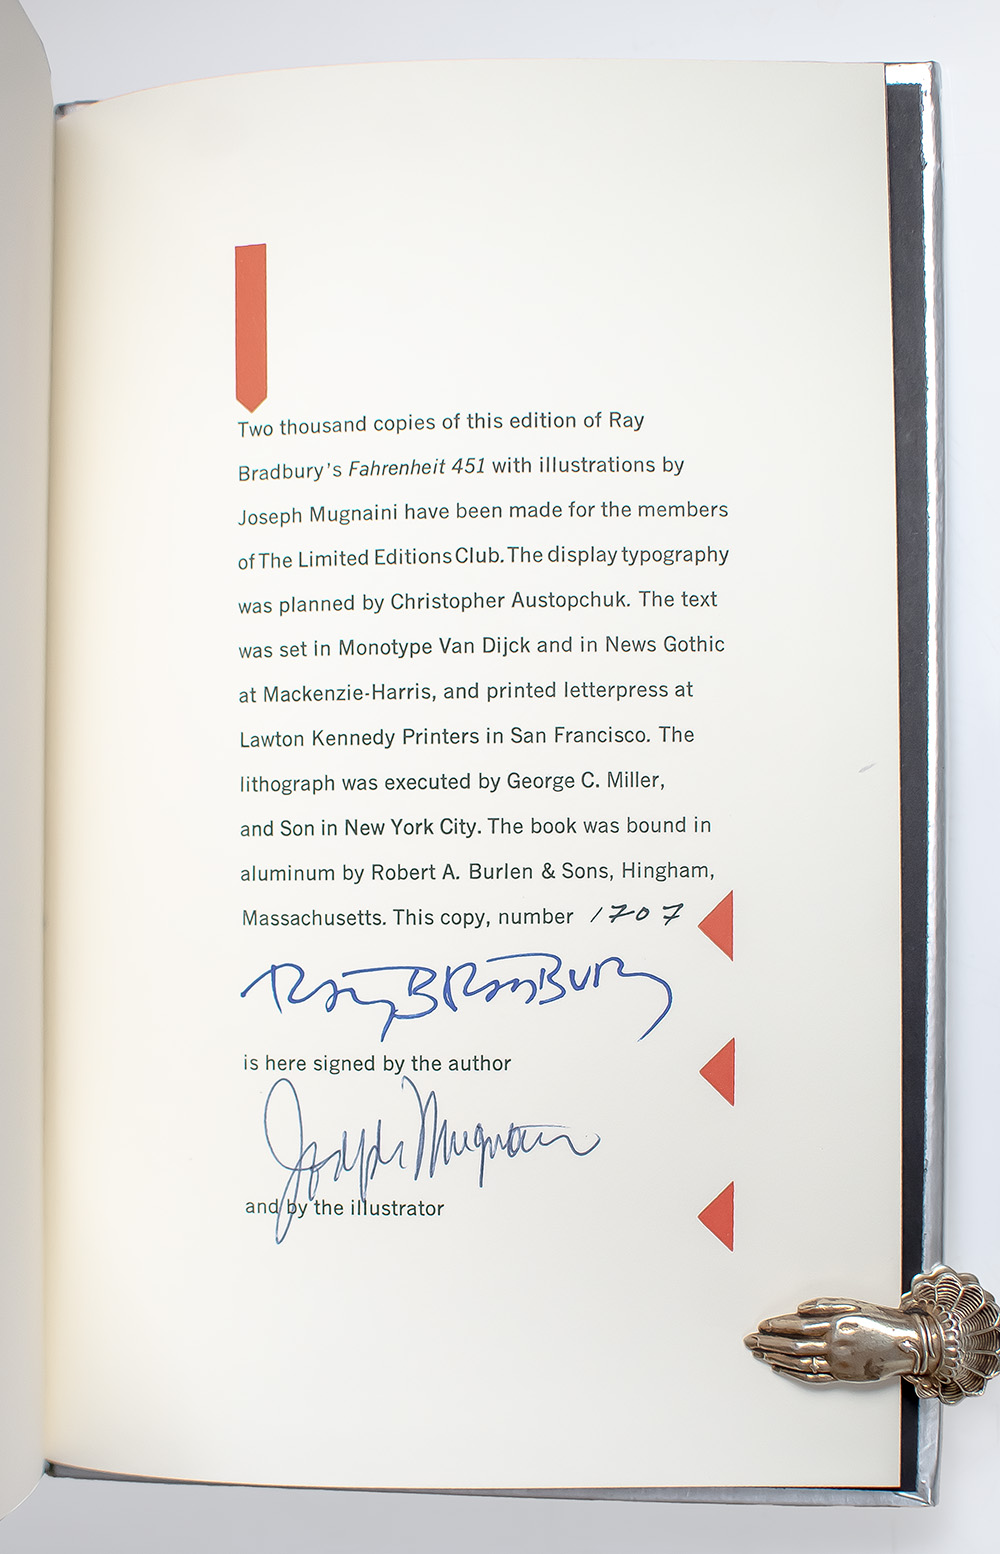 Two thousand copies of this edition of Ray
Bradbury's Fahrenheit 451 with illustrations by
Joseph Mugnaini have been made for the members
of The Limited Editions Club. The display typography
was planned by Christopher Austopchuk. The text
was set in Monotype Van Dijck and in News Gothic
at Mackenzie-Harris, and printed letterpress at
Lawton Kennedy Printers in San Francisco. The
lithograph was executed by George C. Miller,
and Son in New York City. The book was bound in
aluminum by Robert A. Burlen & Sons, Hingham,
Massachusetts. This copy, number 1707
Ray Bradbury
is here signed by the author
Joseph Mugnaini
and by the illustrator